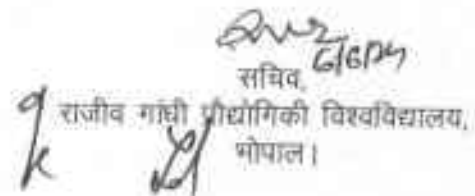 सचिव,
राजीव गांधी प्रौद्योगिकी विश्वविद्यालय,
भोपाल।